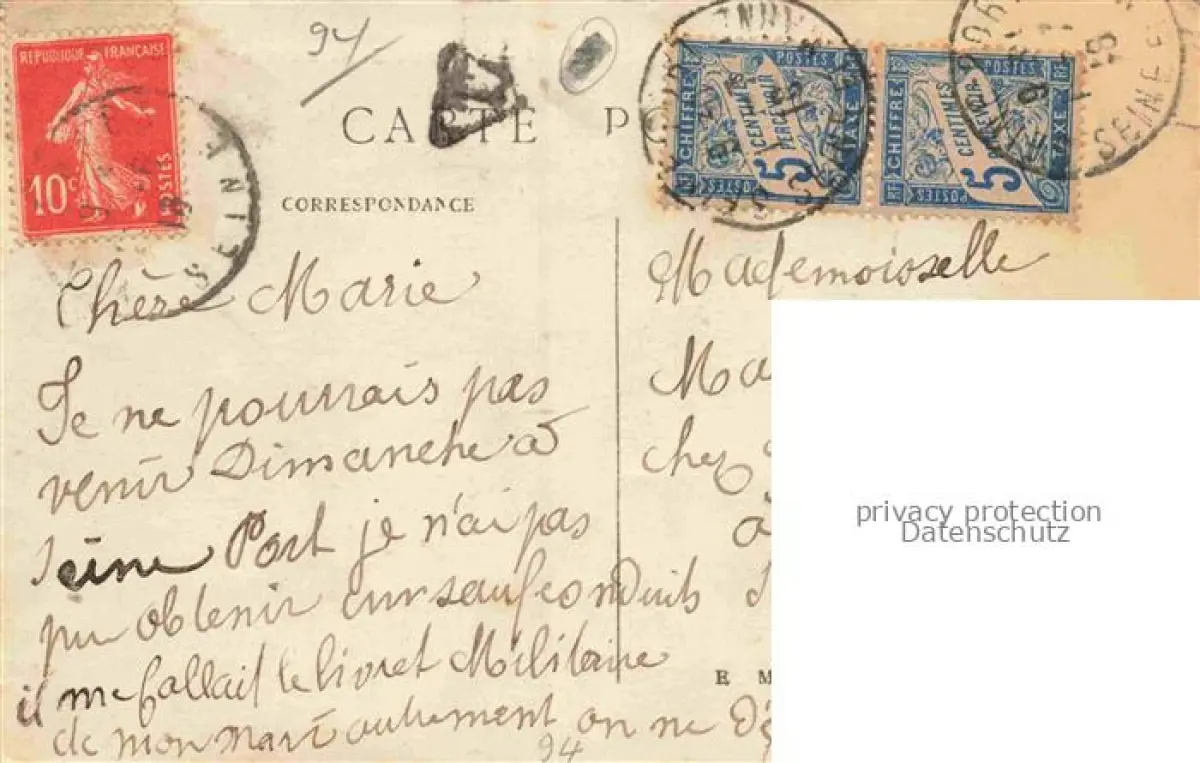 REPUBLIQUE FRANÇAISE
10c POSTES
94
CARTE PO
CORRESPONDANCE
SEINE
CHIFFRE TAXE
POSTES
5 CENTIMES
A PERCEVOIR
POSTES
RF
CHIFFRE TAXE
POSTES
5 CENTIMES
A PERCEVOIR
POSTES
RF
SEINE
Chère Marie
Je ne pourrais pas
venir Dimanche à
Seine Port je n'ai pas
pu obtenir un saufconduits
il me fallait le livret Militaire
de mon mari autrement on ne
94
Mademoisselle
Ma
chez
à
E M
privacy protection
Datenschutz